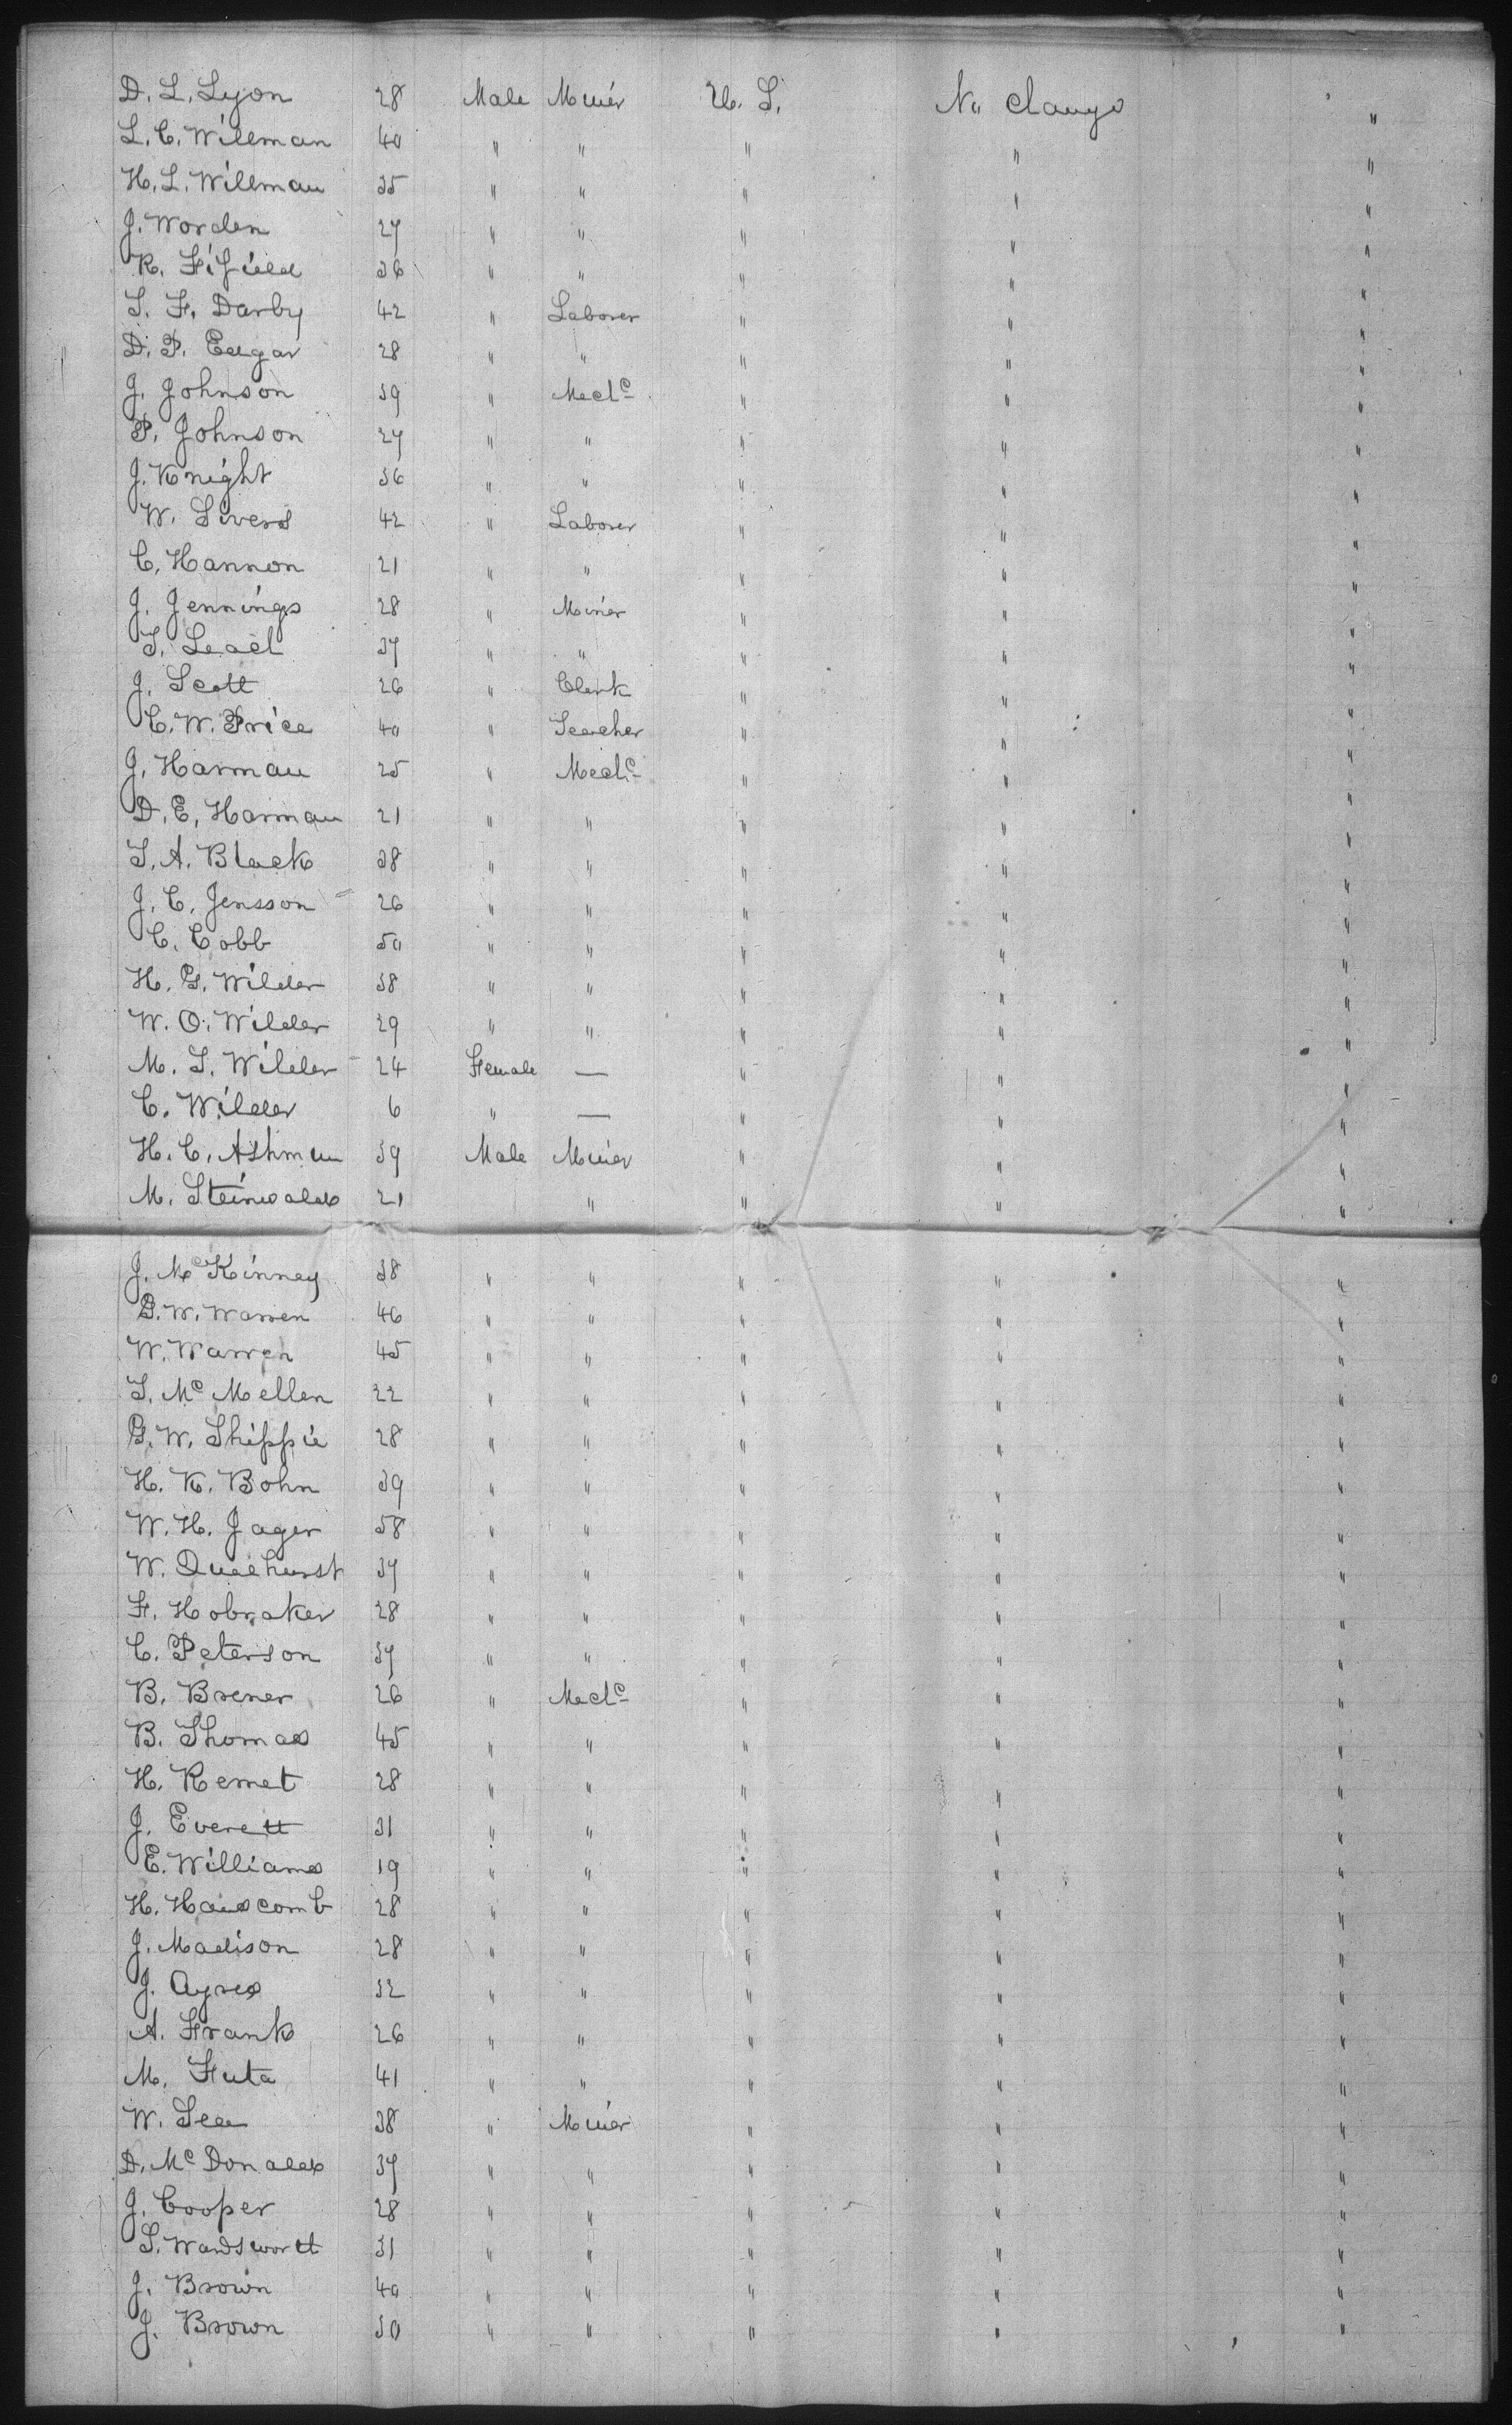 D. L. Lyon 28 Male Miner U. S. No change "
L. C. Willman 40 " " " " "
H. L. Willman 35 " " " " "
J. Worden 27 " " " " "
R. Fifield 36 " " " " "
S. F. Darby 42 " Laborer " " "
D. P. Edgar 28 " " " " "
J. Johnson 39 " Mech " " "
P. Johnson 27 " " " " "
J. Knight 36 " " " " "
W. Sivers 42 " Laborer " " "
C. Hannon 21 " " " " "
J. Jennings 28 " Miner " " "
37 " " " " "
J. Scott 26 " Clerk " " "
C. W. Price 40 " Teacher " " "
J. Harman 25 " Mech " " "
D. E. Harman 21 " " " " "
S. A. Black 38 " " " " "
J. C. Jensson 26 " " " " "
C. Cobb 50 " " " " "
H. G. Wilder 38 " " " " "
W. O. Wilder 29 " " " " "
M. S. Wilder 24 Female — " " "
C. Wilder 6 " — " " "
H. C. Ashman 39 Male Miner " " "
M. Steinwald 21 " " " "
J. McKinney 38 " " " " "
G. W. Warren 46 " " " " "
W. Warren 45 " " " " "
S. Mc Mellen 22 " " " " "
G. W. Shippie 28 " " " " "
H. K. Bohn 39 " " " " "
W. H. Jager 58 " " " " "
W. 37 " " " " "
F. Hobraker 28 " " " " "
C. Peterson 37 " " " " "
B. Brener 26 " Mech " " "
B. Thomas 45 " " " " "
H. Kemet 28 " " " " "
J. Everett 31 " " " " "
E. Williams 19 " " " " "
H. Hanscomb 28 " " " " "
J. Madison 28 " " " " "
J. Ayres 32 " " " " "
A. Frank 26 " " " " "
M. Futa 41 " " " " "
W. 38 " Miner " " "
D. Mc Donald 37 " " " " "
J. Cooper 28 " " " " "
S. Wandsworth 31 " " " " "
J. Brown 40 " " " " "
J. Brown 30 " " " " "